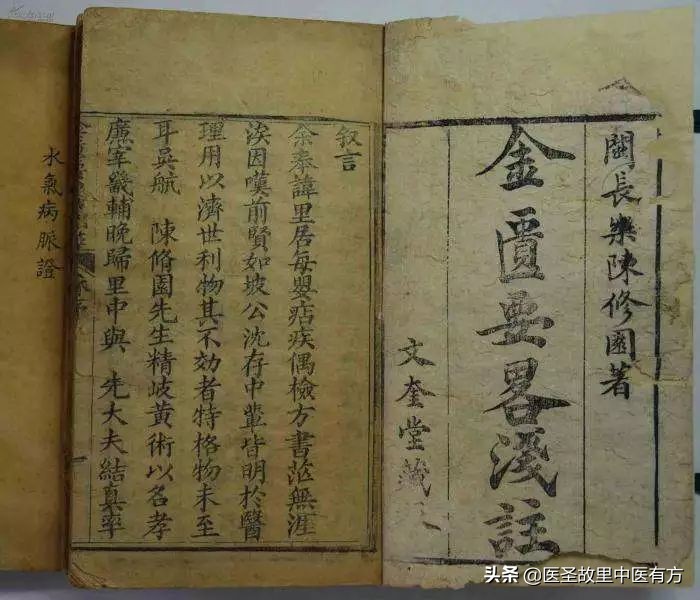 閩長樂陳修園著
金匱要畧淺註
文奎堂藏
叙言
余奉諱里居每嬰痁疾偶檢方書茫無涯
涘因嘆前賢如坡公沈存中輩皆明於醫
理用以濟世利物其不効者特格物未至
耳吳航 陳脩園先生精岐黃術以名孝
廉宰畿輔晚歸里中與 先大夫結真率
水氣病脈證
头条 @医圣故里中医有方